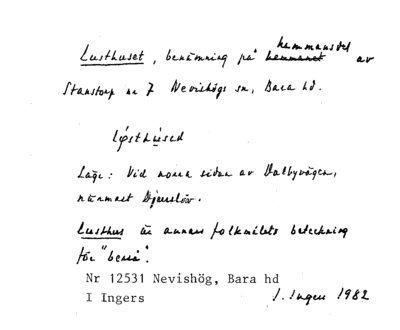 Lusthuset, benämning på hemmanet hemmansdel av
Stanstorp nr 7 Nevishögs sn, Bara hd.
Läge: Vid norra sidan av Dalbyvägen,
närmast Djurslöv.
Lusthus är annars folkmålets beteckning
för "berså".
Nr 12531 Nevishög, Bara hd
I Ingers
I. Ingers 1982